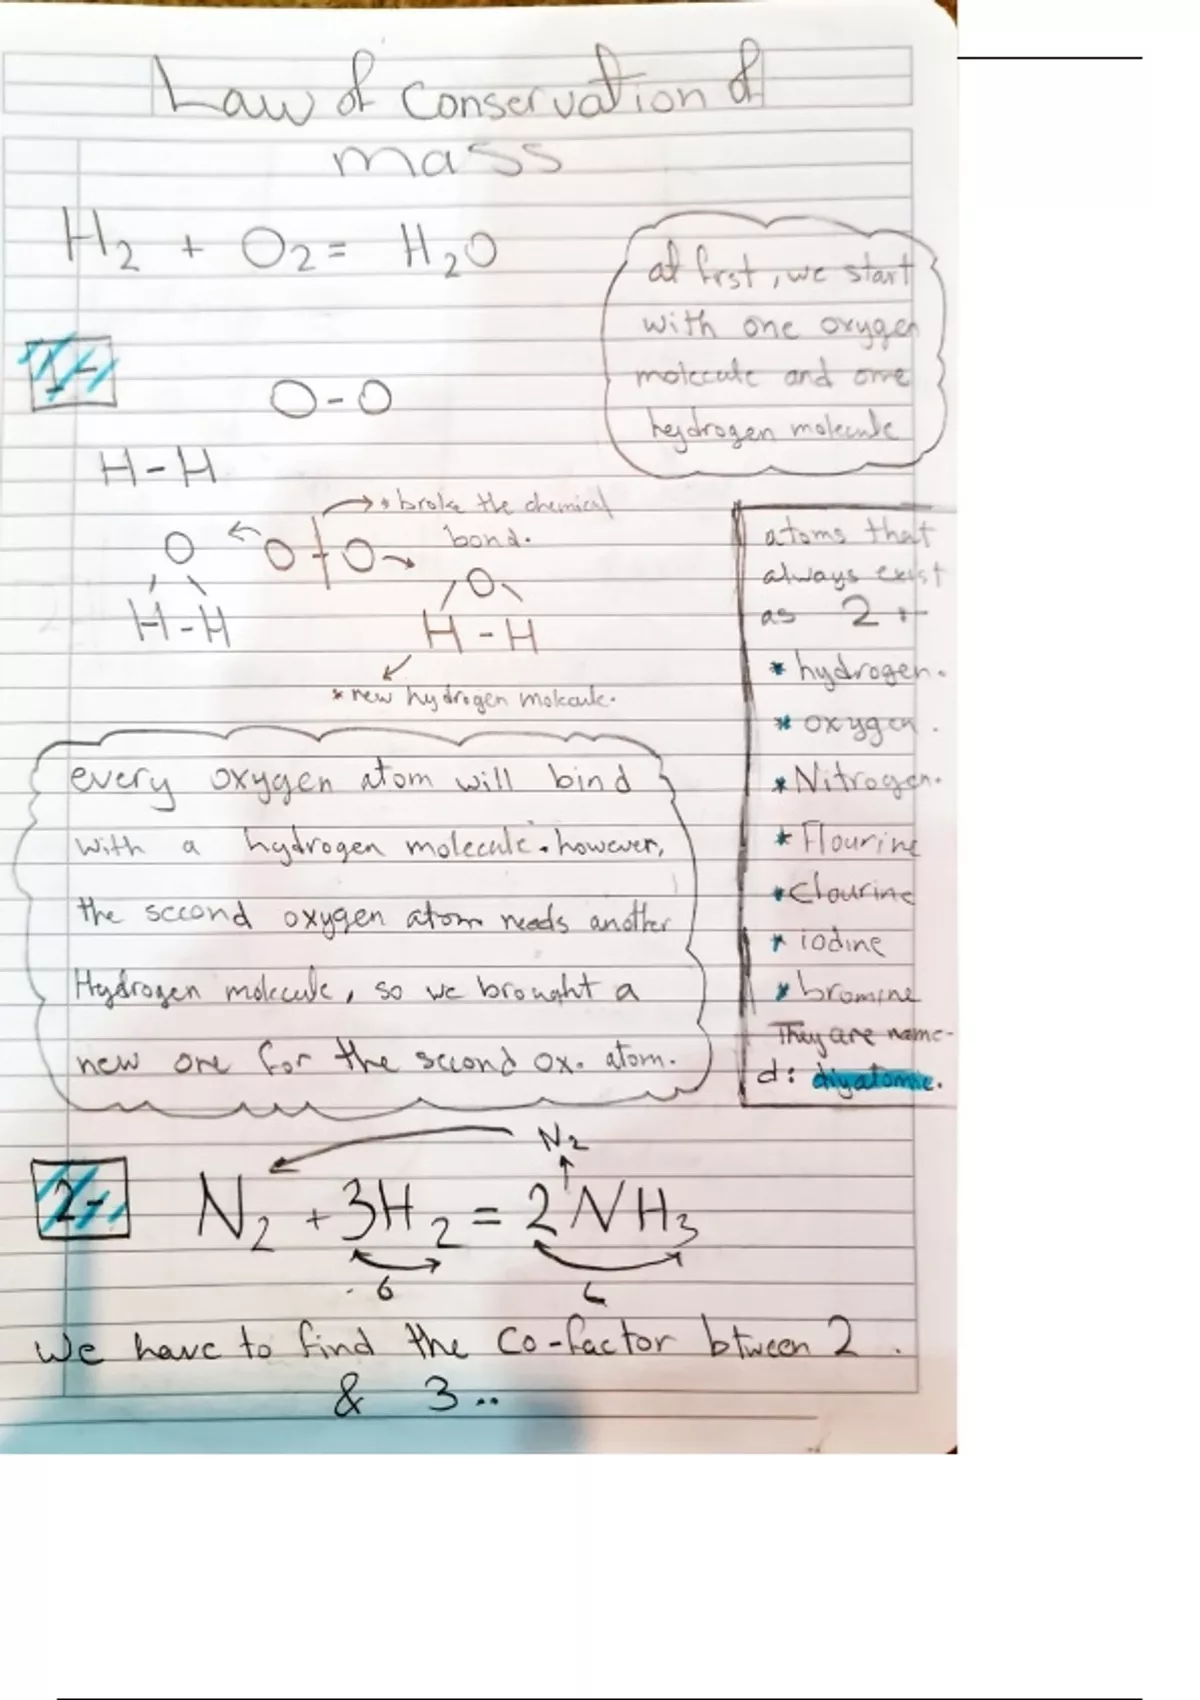 Law of conservation of
mass
H2 + O2 = H2O
at first, we start
with one oxygen
molecule and one
heydrogen molecule
1-
O-O
H-H
* broke the chemical
bond.
O O+O O
H-H H-H
* new hydrogen molecule.
atoms that
always exist
as 2 :
* hydrogen.
* oxygen.
* Nitrogen.
* Flourine
* Clourine
* iodine
* bromine
They are name-
d: diyatomic.
every oxygen atom will bind
with a hydrogen molecule. however,
the second oxygen atom needs another
Hydrogen molecule, so we brought a
new one for the second ox. atom.
N2
2- N2 + 3H2 = 2NH3
6 6
We have to find the Co-factor btween 2
& 3..